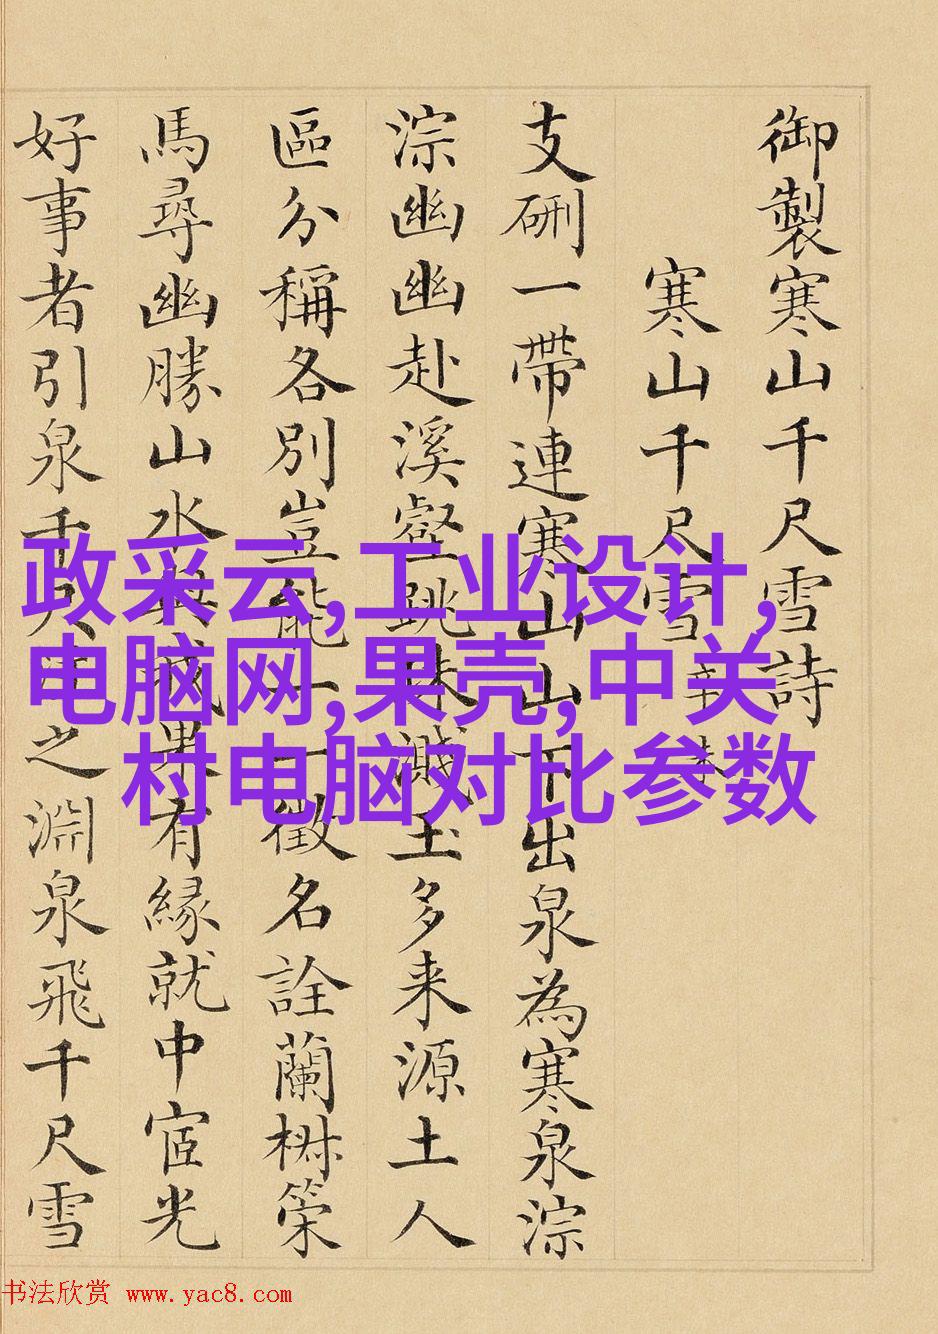 御製寒山千尺雪詩
寒山千尺雪 辛未
支硎一帶連寒山山下出泉為寒泉淙
淙幽幽赴溪壑跳珠濺玉多来源土人
區分稱各別豈能一一徵名詮蘭椒策
馬尋幽勝山水與成果有縁就中宧光
好事者引泉千尺注之淵泉飛千尺雪
政采云,工业设计,
电脑网,果壳,中关
村电脑对比参数
书法欣赏 www.yac8.com